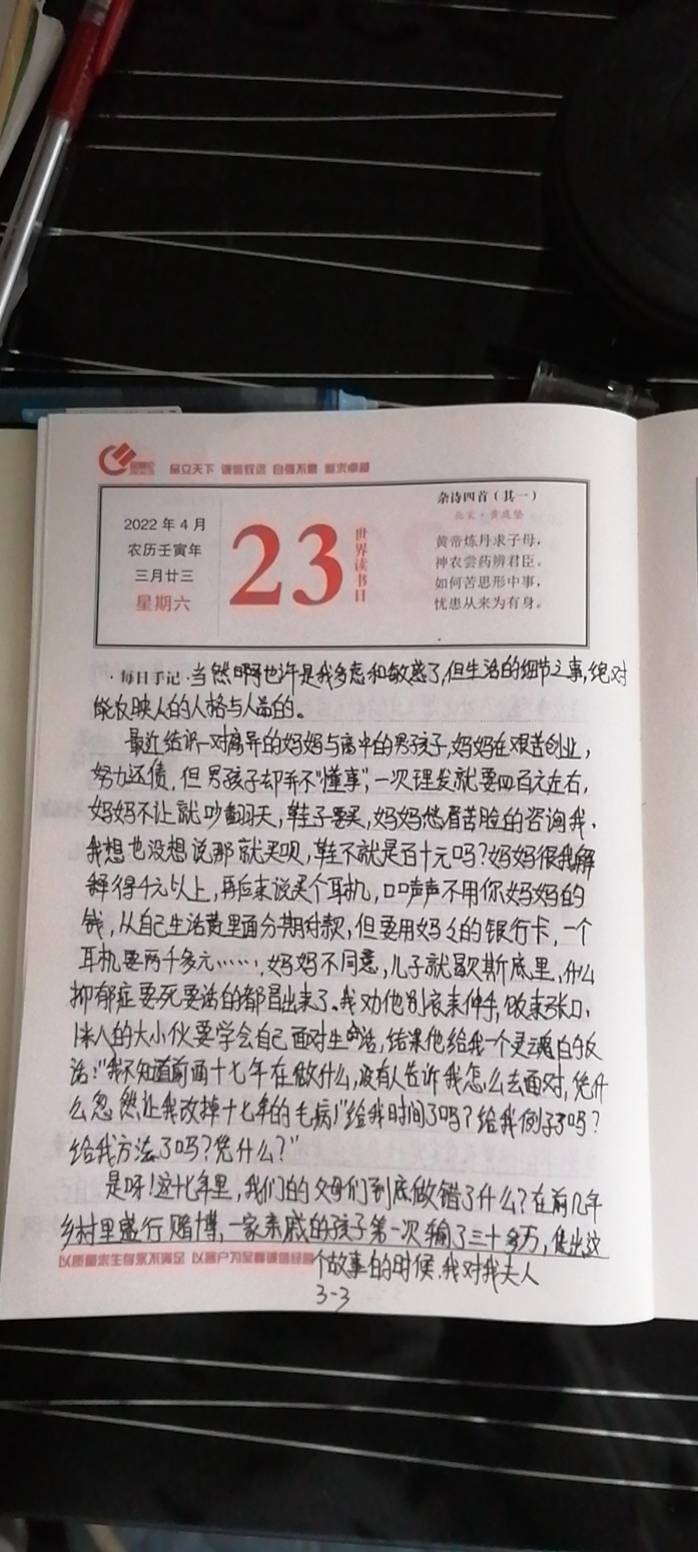 品立天下 诚信致远 自强不息 追求卓越
2022年4月
农历壬寅年
三月廿三
星期六
23
世界读书日
杂诗四首（其一）
北宋·黄庭坚
黄帝炼丹求子母，
神农尝药辨君臣。
如何苦思形中事，
忧患从来为有身。
·每日手记·当然啊也许是我多虑和敏感了,但生活的细节之事,绝对
能反映人的人格与人品的。
最近结识一对离异的妈妈与高中的男孩子,妈妈在艰苦创业,
努力还债,但男孩子却并不"懂事",一次理发就要四百元左右,
妈妈不让就吵翻天,鞋子要买,妈妈愁眉苦脸的咨询我,
我想也没想说那就买呗,鞋不就是百十元吗?妈妈很我解
释得千元以上,再后来说买个耳机,口口声声不用你妈妈的
钱,从自己生活费里面分期付款,但要用妈妈的银行卡,一个
耳机要两千多元……,妈妈不同意,儿子就歇斯底里,什么
抑郁症要死要活的都冒出来了。我劝他别衣来伸手,饭来张口,
1米八的大小伙要学会自己面对生活,结果他给我一个灵魂的反
话:"我不知道前面十七年在做什么,没有人告诉我怎么去面对,凭什
么忽然让我改掉十七年的毛病!"给我时间了吗?给我例子了吗?
给我方法了吗?凭什么?"
是呀!这十七年里,我们的父母们到底做错了什么?在前几年
乡村里盛行赌博,一家亲戚的孩子第一次输了三十多万,传出这
以质量求生存永不满足 以客户为至尊诚信经营
个故事的时候,我对我夫人
3-3